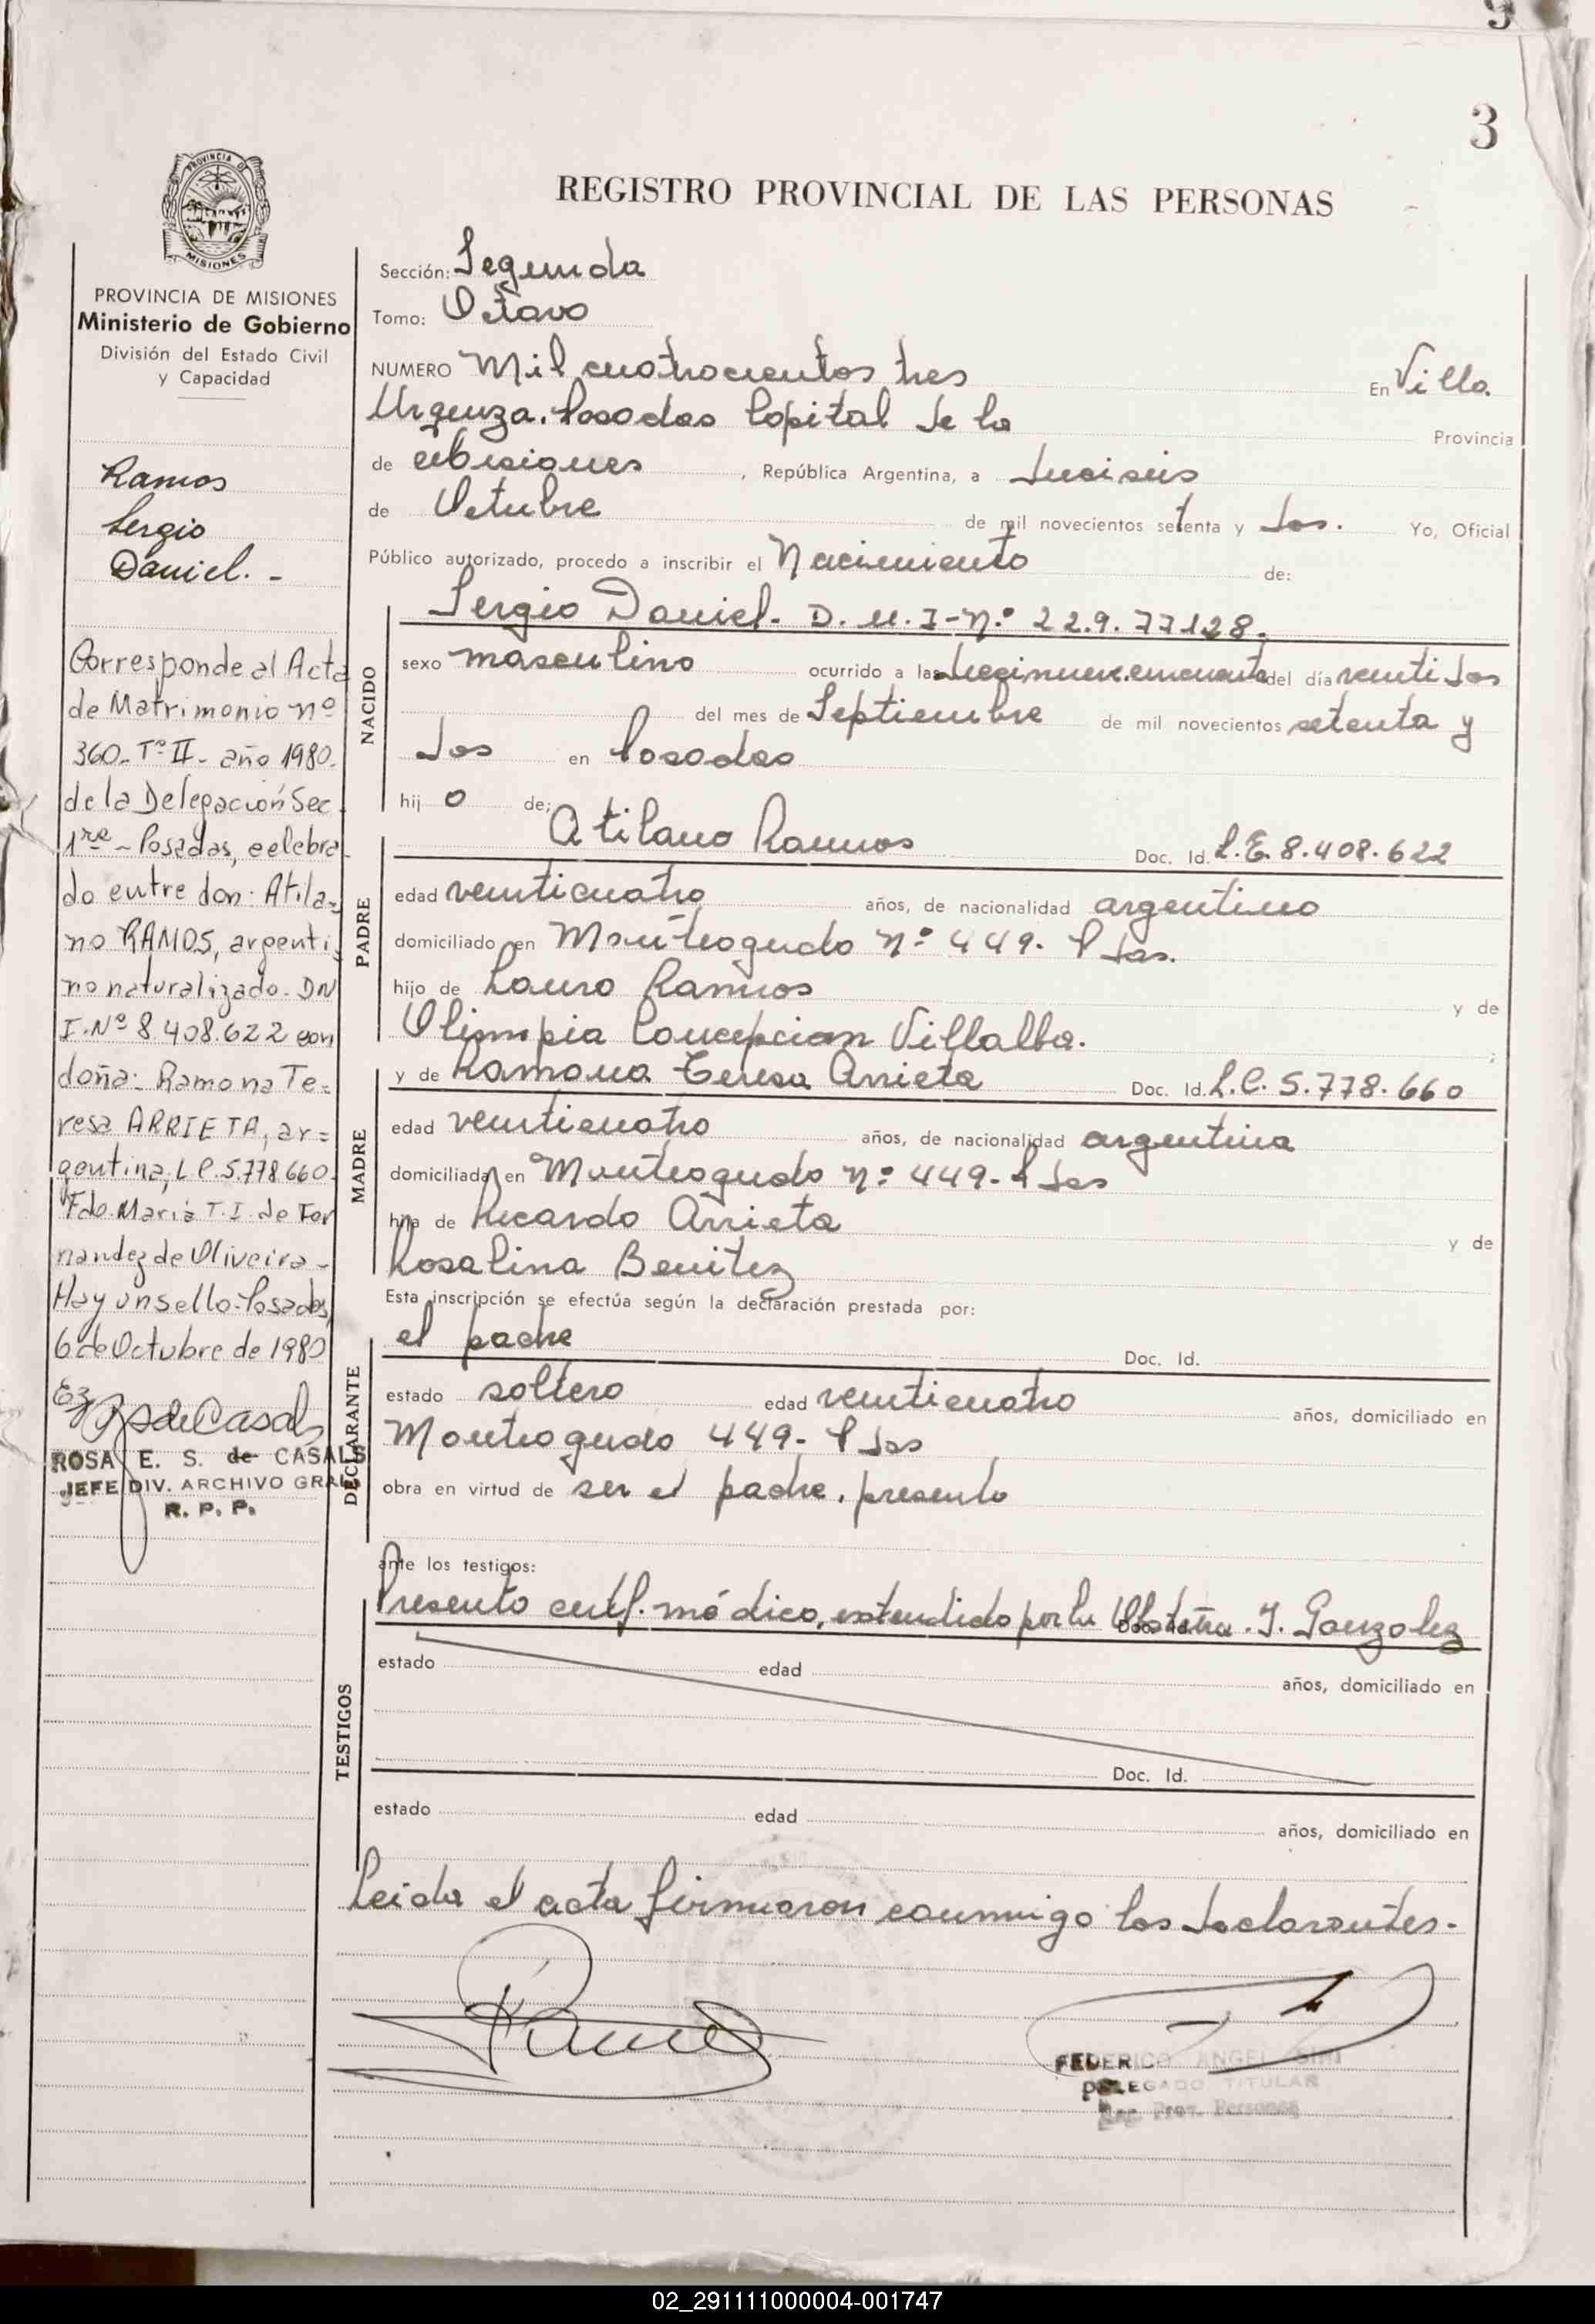 9
3
PROVINCIA DE
MISIONES
REGISTRO PROVINCIAL DE LAS PERSONAS
PROVINCIA DE MISIONES
Ministerio de Gobierno
División del Estado Civil
y Capacidad
Ramos
Sergio
Daniel. -
Corresponde al Acta
de Matrimonio nº
360- Tº II - año 1980.
de la Delegación Sec.
1ra - Posadas, celebra-
do entre don: Atila=
no RAMOS, argenti=
no naturalizado. DN
I. Nº 8.408.622 con
doña: Ramona Te=
resa ARRIETA, ar=
gentina, L.C. 5.778.660.
Fdo. Maria T. I. de Fer
nandez de Oliveira -
Hay un sello. Posadas,
6 de Octubre de 1980
ROSA E. S. de CASALS
JEFE DIV. ARCHIVO GRAL
R. P. P.
Sección: Segunda
Tomo: Octavo
NUMERO Mil cuatrocientos tres En Villa
Urquiza. Posadas Capital de la Provincia
de Misiones , República Argentina, a dieciseis
de Octubre de mil novecientos setenta y dos. Yo, Oficial
Público autorizado, procedo a inscribir el Nacimiento de:
NACIDO
Sergio Daniel - D. M. I - Nº 22.9.77128.
sexo masculino ocurrido a las diecinueve. cincuenta del día veintidos
del mes de Septiembre de mil novecientos setenta y
dos en Posadas
hij o de:
PADRE
Atilano Ramos Doc. Id. L.E. 8.408.622
edad veinticuatro años, de nacionalidad argentino
domiciliado en Monteagudo nº 449. Pdas.
hijo de Lauro Ramos y de
Olimpia Concepcion Villalba. ;
MADRE
y de Ramona Teresa Arrieta Doc. Id. L.C. 5.778.660
edad veinticuatro años, de nacionalidad argentina
domiciliada en Monteagudo nº 449. Pdas
hija de Ricardo Arrieta y de
Rosalina Benitez
Esta inscripción se efectúa según la declaración prestada por:
DECLARANTE
el padre Doc. Id.
estado soltero edad veinticuatro años, domiciliado en
Monteagudo 449- Pdas
obra en virtud de ser el padre. presento
ante los testigos:
TESTIGOS
Presento certf. médico, extendido por la Obstetra. J. Gonzalez
estado edad años, domiciliado en
Doc. Id.
estado edad años, domiciliado en
Leida el acta firmaron conmigo los declarantes.
FEDERICO ANGEL SIRI
DELEGADO TITULAR
Reg. Prov. Personas
02_291111000004-001747